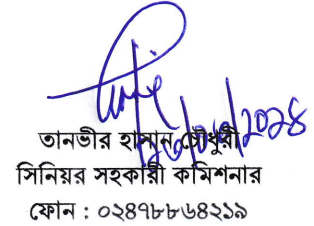 তানভীর হাসান চৌধুরী
সিনিয়র সহকারী কমিশনার
ফোন : ০২৪৭৮৮৬৪২১৯